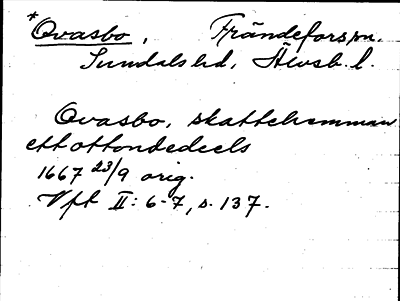 *Ovasbo, Frändefors sn.
Sundals hd, Älvsb. l.
Ovasbo, skattehemman
ett ottondedeels
1667 23/9 orig.
Vft II: 6-7, s. 137.